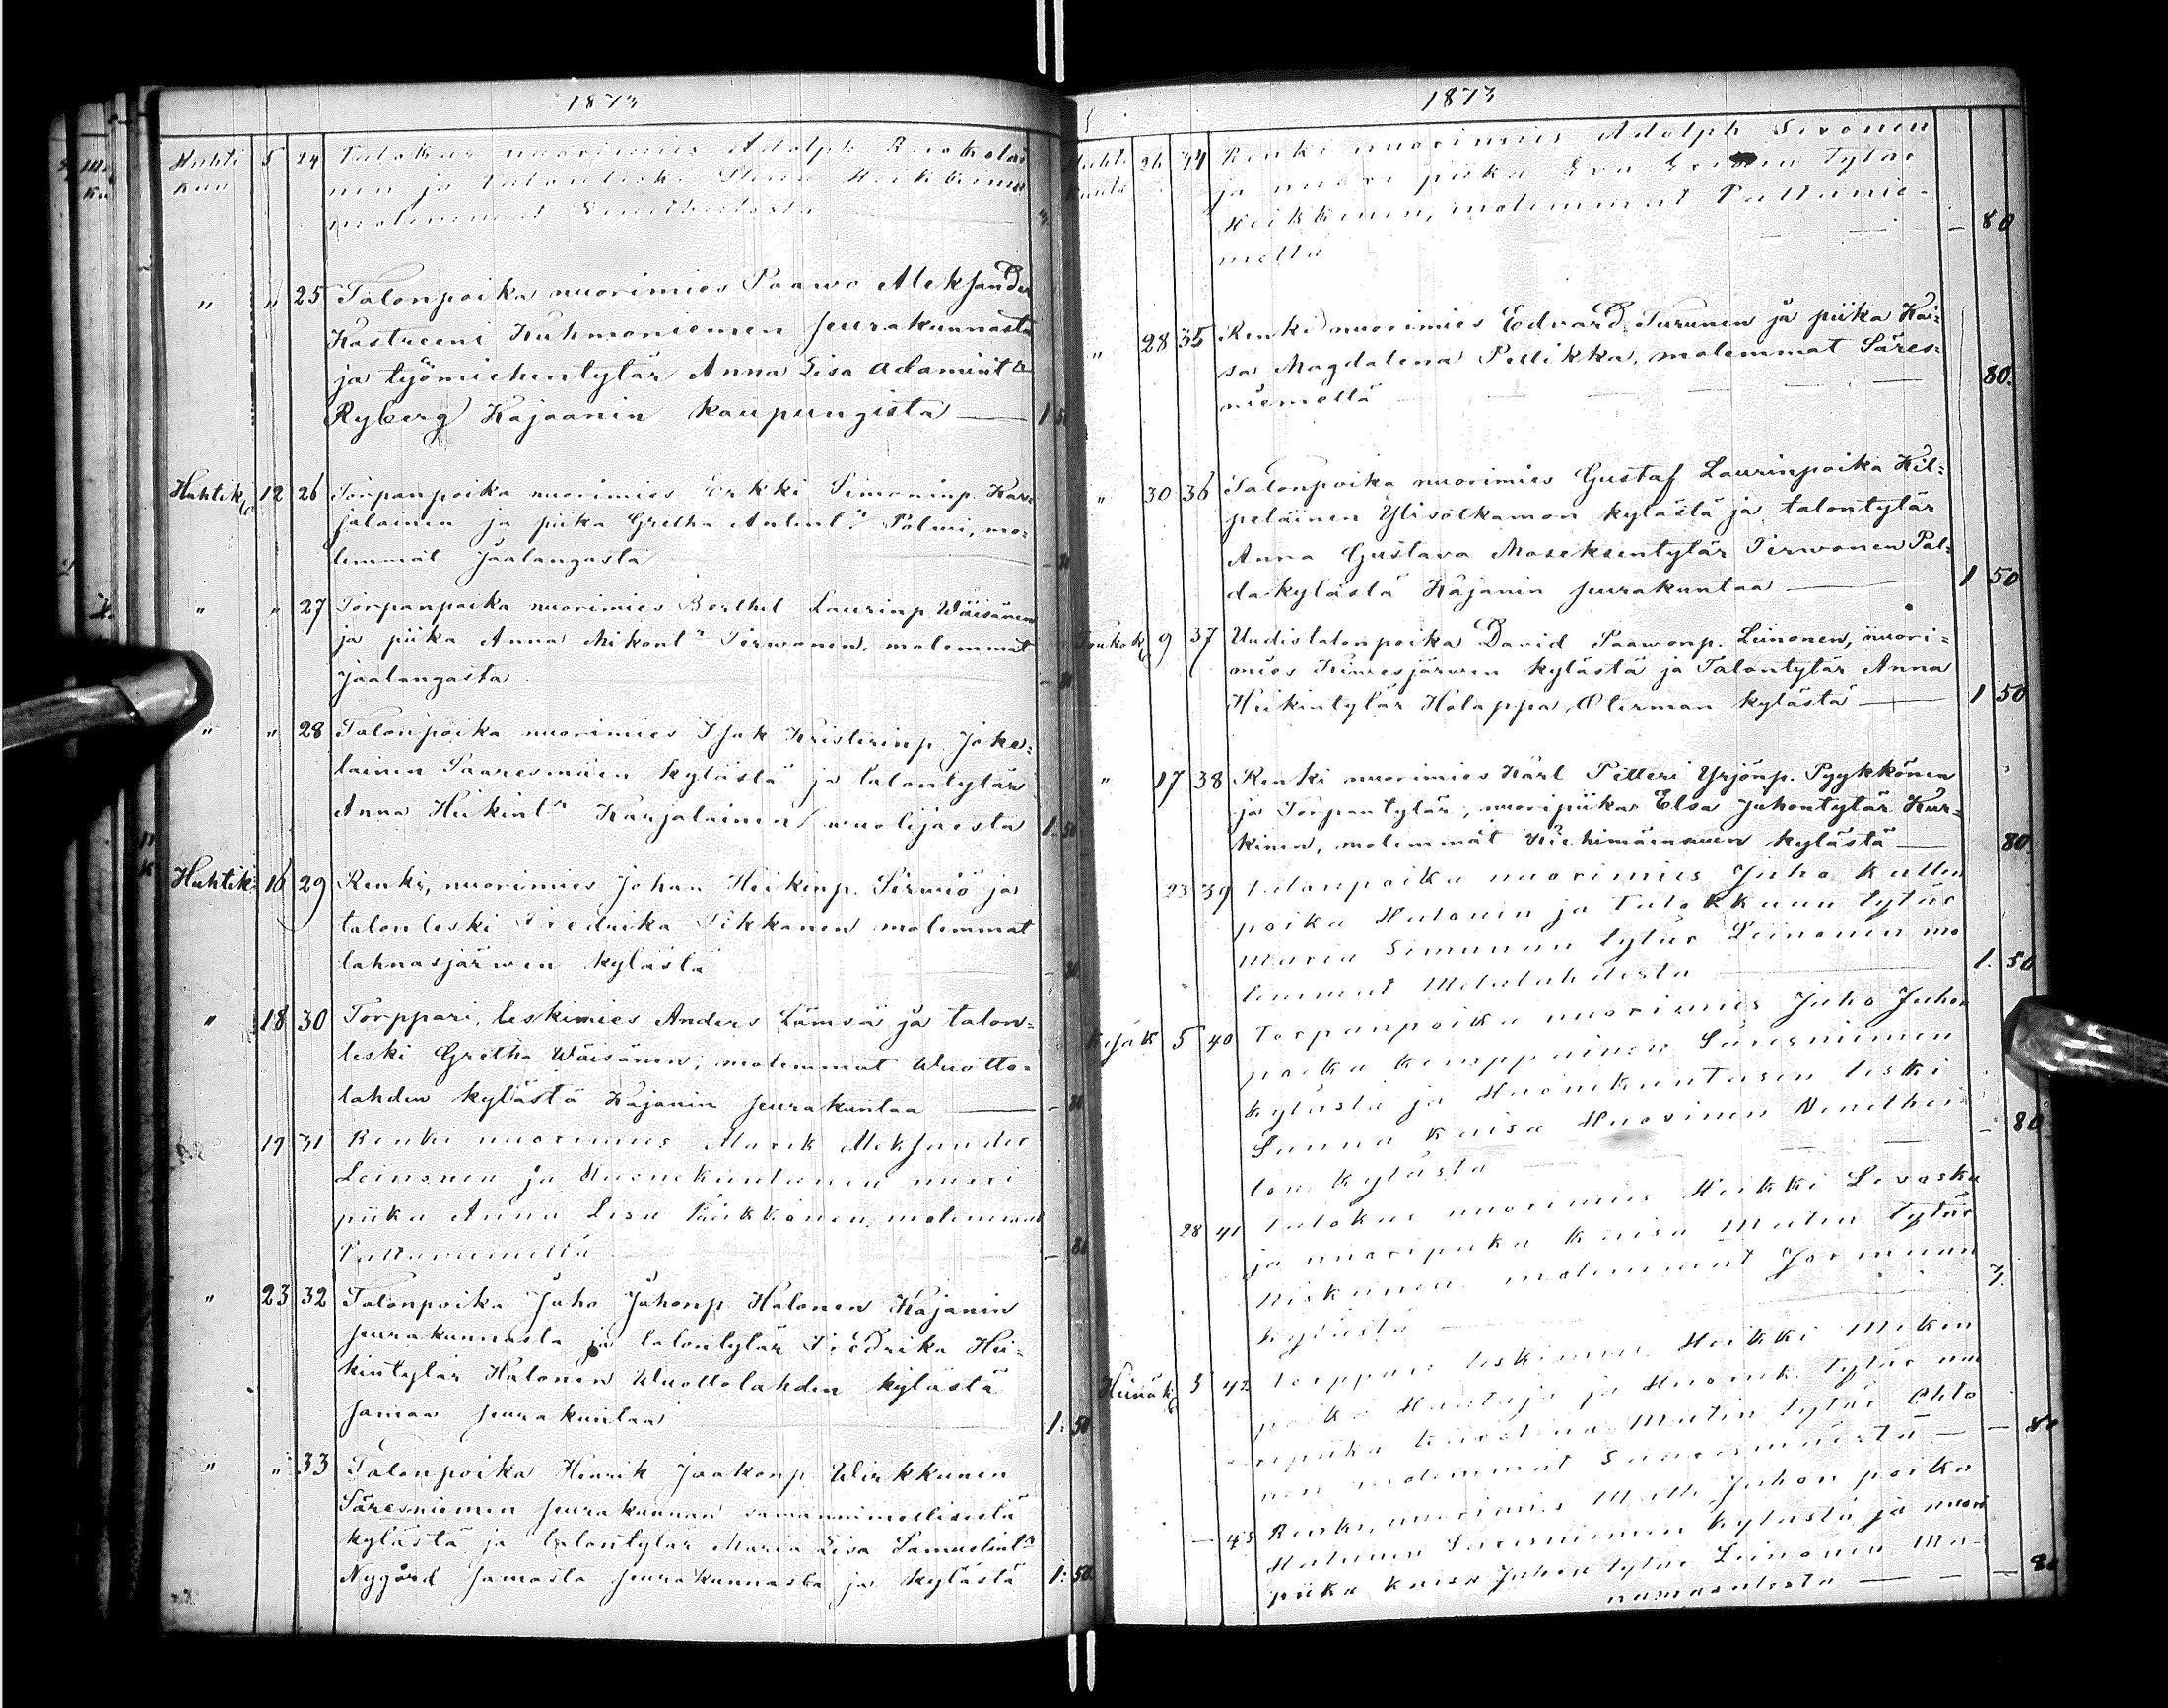 1873
Huhti 5 24 Talokas nuorimies Adolph
kuu
nen ja talonleski Stina Heikkinen
molemmat
" " 25 Talonpoika nuorimies Paawo Aleksander
Kastreeni Kuhmoniemen seurakunnasta
ja työmiehentytär Anna Lisa Adamint:r
Ryberg Kajaanin kaupungista — 1 50
Huhtik. 12 26 Torpanpoika nuorimies Erkki Simoninp. Kar=
jalainen ja piika Gretha Antint:r Polwi, mo=
lemmat Jaalangasta — 80
" " 27 Torpanpoika nuorimies Berthel Laurinp. Wäisänen
ja piika Anna Mikont:r Tirwonen, molemmat
Jaalangasta — 80
" " 28 Talonpoika nuorimies Isak Kristerinp. Joke=
lainen Saaresmäen kylästä ja talontytär
Anna Heikint:r Karjalainen wuolijoesta 1. 50
Huhtik. 16 29 Renki, nuorimies Johan Heikinp. Sirwiö ja
talonleski Fredrika Tikkanen molemmat
lahnasjärwen kylästä — 80
" 18 30 Torppari, leskimies Anders Lämsä ja talon=
leski Gretha Wäisänen, molemmat Wuotto=
lahden kylästä Kajanin seurakuntaa — 80
19 31 Renki nuorimies Aleksander
Leinonen ja Huonekuntanen nuori
piika Anna Lisa molemmat
Paltaniemeltä — 80
" 23 32 Talonpoika Juho Juhonp. Halonen Kajanin
seurakunnasta ja talontytär Fredrika Hei=
kintytär Halonen Wuottolahden kylästä
samaa seurakuntaa 1: 50
" " 33 Talonpoika Henrik Jaakonp. Wirkkunen
Säresniemen seurakunnan samannimellisestä
kylästä ja talontytär Maria Lisa Samuelint:r
Nygård samasta seurakunnasta ja kylästä 1: 50
1873
Huhti 26 34 Renki nuorimies Adolph Sivonen
kuuta ja nuori piika Eva tytär
Heikkinen, molemmat Paltanie-
meltä — 80
" 28 35 Renki nuorimies Edvard Turunen ja piika Kai=
sa Magdalena Pellikka, molemmat Säres=
niemellä — 80.
" 30 36 Talonpoika nuorimies Gustaf Laurinpoika Kil=
peläinen Ylisotkamon kylästä ja talontytär
Anna Gustava Moseksentytär Tirwonen Pal=
dakylästä Kajanin seurakuntaa — 1 50
Toukok. 9 37 Uudistalonpoika David Paawonp. Leinonen, nuori=
mies Kiwesjärwen kylästä ja Talontytär Anna
Heikintytär Holappa, Oterman kylästä — 1 50
" 17 38 Renki nuorimies Karl Petteri Yrjönp. Pyykkönen
ja Torpantytär, nuoripiika Elsa Juhontytär Kur=
kinen, molemmat kylästä — 80
23 39 Talonpoika nuorimies Juho Kallen
poika Hulonin ja Talokkaan tytär
Maria Simunan tytär Leinonen mo
lemmat Melalahdesta — 1. 50
Kesäk 5 40 Torpanpoika nuorimies Juho Juhon
poika Kemppainen Säresniemen
kylästä ja Huonekuntasen leski
Sanna Kaisa Huovinen
lon kylästä — 80
28 41 Talokas nuorimies Heikki
ja nuoripiika Kaisa Matin tytär
molemmat Jormuan
kylästä 3.
Heinäk. 3 42 Torppari leskimies Heikki Mikon
poika ja Huonek. tytär nuo
ripiika Matin tytär Ohto
nen molemmat Saaresmäestä — 80
— 43 Renki, nuorimies Matti Juhon poika
Säresniemen kylästä ja nuori
piika Kaisa Juhon tytär Leinonen Ma-
namansalosta — 80